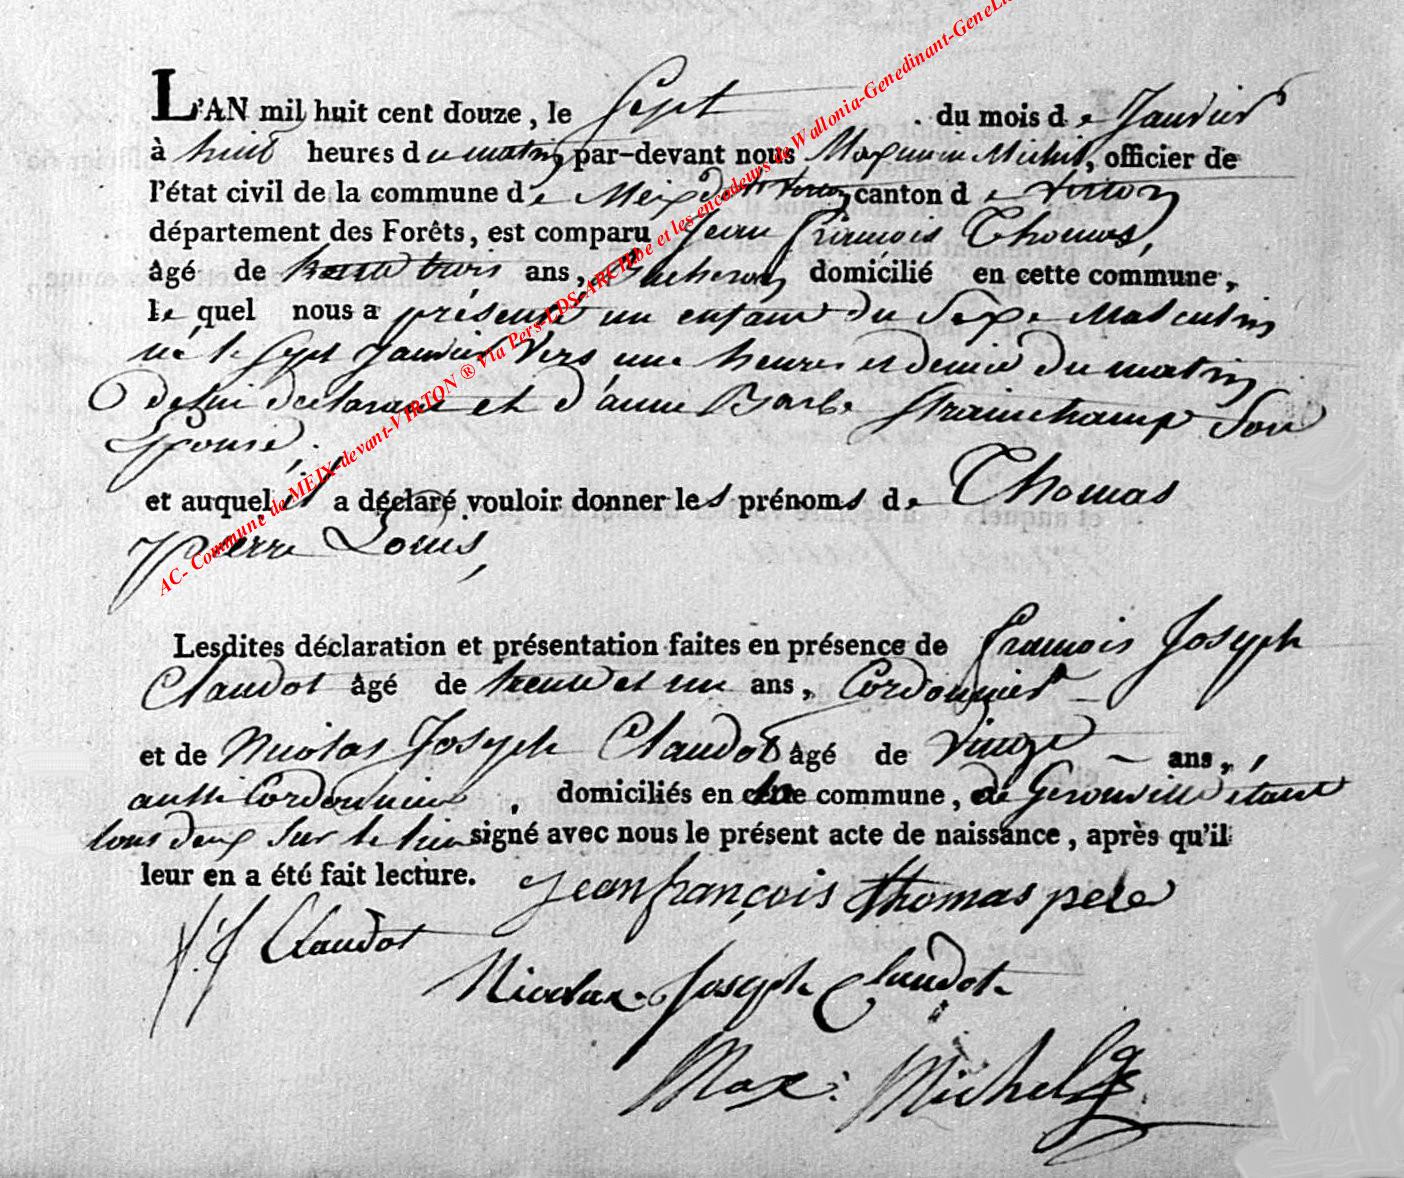 L'AN mil huit cent douze, le Sept du mois de Janvier
à huit heures du matin par-devant nous Maximin Michel, officier de
l'état civil de la commune de Meix dt virton canton de virton
département des Forêts, est comparu Jean François Thomas,
âgé de trente trois ans, Bucheron domicilié en cette commune,
lequel nous a présenté un enfant du Sexe Masculin
né le Sept Janvier vers une heures et demie du matin
De lui declarant et d'anne Barbe Strainchamp Son
Epouse,
et auquel il a déclaré vouloir donner les prénoms de Thomas
pierre Louis,
Lesdites déclaration et présentation faites en présence de François Joseph
Claudot âgé de trente et un ans, Cordonnier
et de Nicolas Joseph Claudot âgé de vingt ans,
aussi Cordonnier, domiciliés en commune, de Gerouville étant
tous deux Sur le lieu signé avec nous le présent acte de naissance, après qu'il
leur en a été fait lecture. Jean françois thomas pere
f. j Claudot
Nicolas Joseph Claudot
Max: Michel
AC- Commune de MEIX-devant-VIRTON ® Via Pers-LDS-ARCHbe et les encodeurs de Wallonia-Genedinant-GeneLi